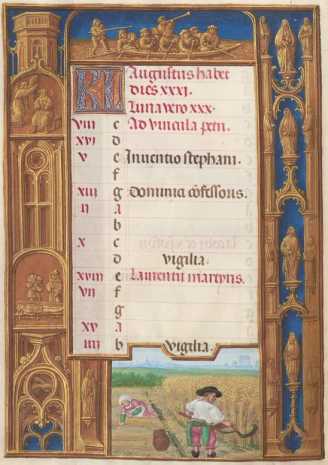 KL Augustus habet
dies xxxi.
Luna vero xxx.
viii c Ad vincula petri.
xvi d
v e Inventio stephani.
f
xiii g Dominici cōfessoris.
ii a
b
x c
d vigilia.
xviii e Laurentii martyris.
vii f
g
xv a
iiii b vigilia.